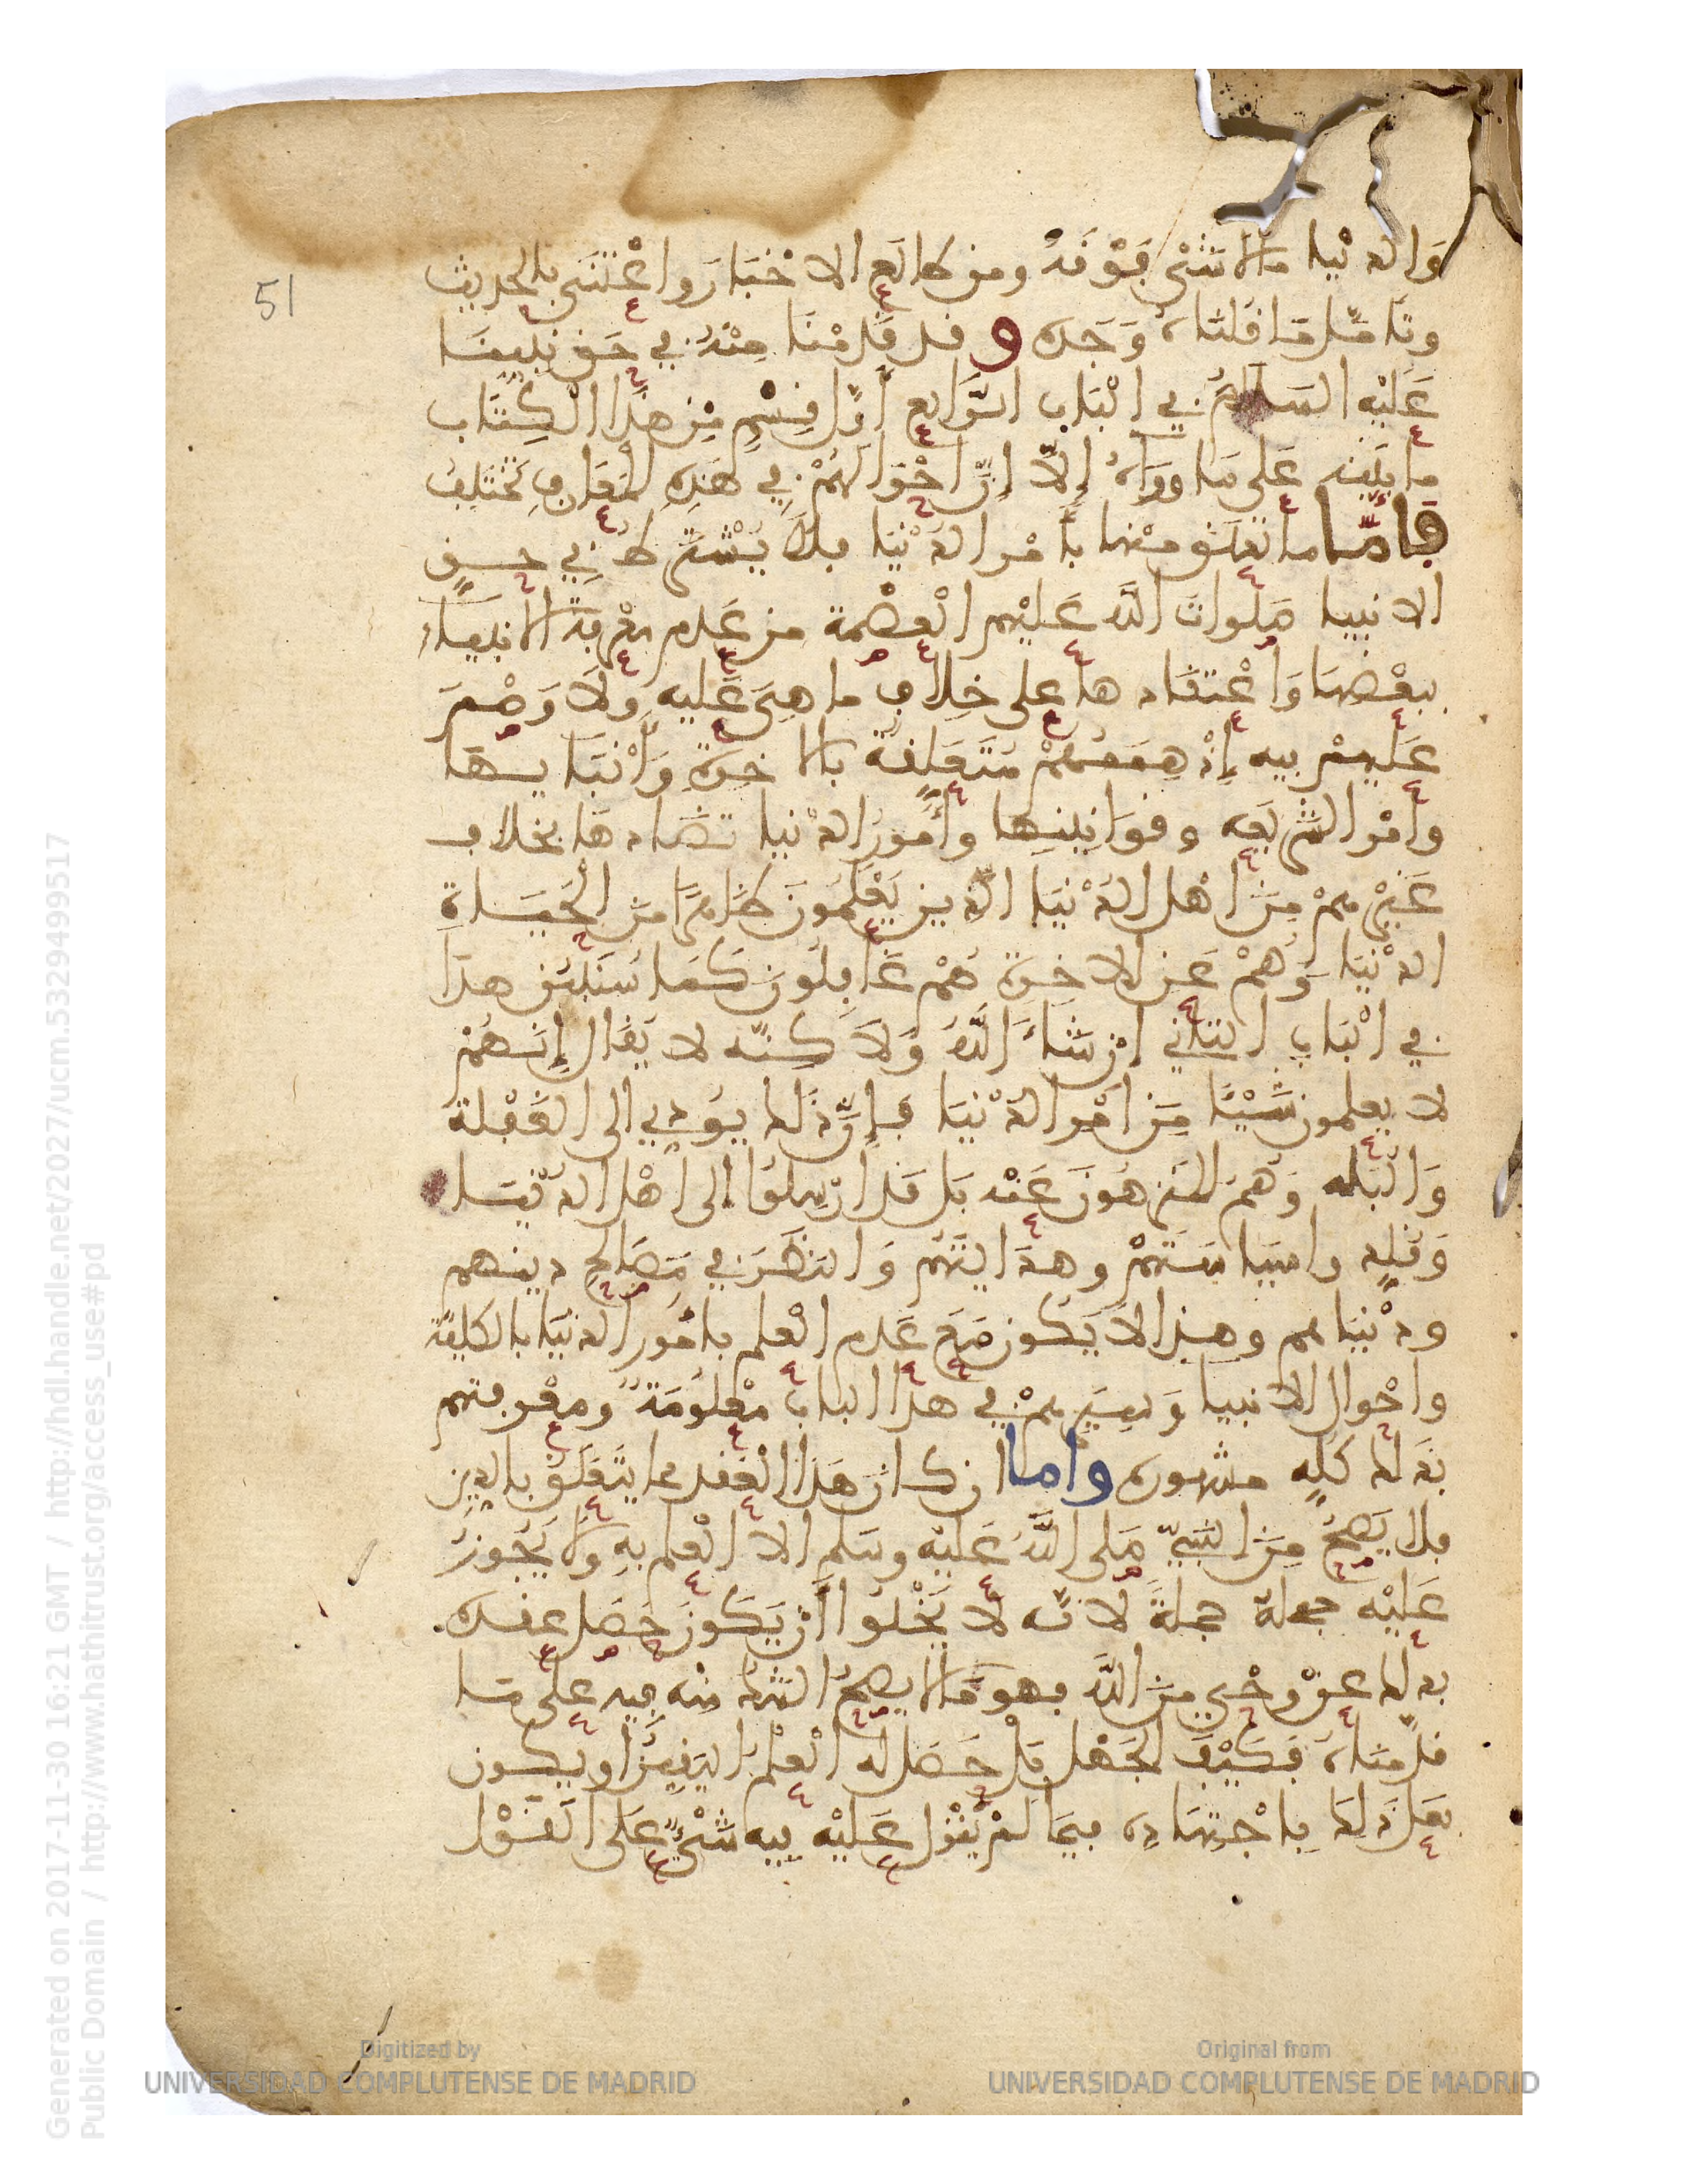 وَالدنْيا مالا شَيْءَ فَوْقَهُ ومن طالَعَ الاخْبَارَ واعْتَنَى بالحديث
وتَأمَّلَ مَا قلناهُ وَجَده وقد قدمْنَا مِنْهُ في حَق نبينَا
عَلَيْه السَلامُ في الْبَاب الرَّابع أوّل قِسْمٍ مِن هذَا الْكِتَاب
ما يُنبه عَلى مَا وراءَهُ إلاّ إنّ أحْوَالهُمْ في هَذِهِ المعَارِفِ تَخْتَلِفُ
فأمّا ما تعلق منها بأمْر الدُنْيا فلاَ يُشْتَرطُ في حق
الانبيا صَلوات اللَّه عَلَيْهم الْعِصْمة من عَدم مَعْرفة الانبياء
ببعْضهَا وَاعْتقَادها على خِلاف ما هِيَ عَليه ولَا وَصْمَ
عَلَيهمْ فيه إذْ هِمَمُهُمْ مُتَعَلِّقة بالاخرة وَأنْبَايهَا
وأمْر الشريعَه وقوَانينها وأمورُ الدنيا تضَادها بخلاف
غَيْرهمْ مِنَ اهْل الدُنْيَا الّذين يَعْلَمُونَ ظَاهرًا مِنَ الْحَيَاةِ
الدنْيَا وَهُمْ عَن الاخِرة هُمْ غَافِلُونَ كَمَا سَنُبَيّن هذَا
في الْبَاب الثاني انْ شَاءَ اللَّهُ وَلاكنّه لا يُقَال إنَّهُمْ
لا يعلمون شَيْئًا مِنَ أمْر الدُنْيَا فإنّ ذَلك يؤدي الى الغَفْلة
وَالْبَله وَهُم المنزهُونَ عَنْه بَل قد ارْسِلُوا إلى أهْل الدُنْيَا
وَقُلّدوا سيَاسَتهمْ وهدَايتَهُم وَالنظَر في مَصَالح دينهم
ودنْيَاهم وهذا لاَ يَكون مَعَ عَدم الْعلم بامُور الدنيَا بالكليّة
واحْوال الانبيا وَسِيَرهمْ في هذا الباب مَعْلُومَة ومعْرفتهم
بذَلك كلِّه مشهورة وأما ان كان هَذا العقد مما يتَعَلّق بالدين
فلا يَصِحّ مِنَ النَّبيّ صَلى اللَّهُ عَليْه وسَلم الا العلم بهِ ولا يَجُوزُ
عَلَيْه جهله جملَةً لانّه لا يَخْلُوا أنْ يَكونَ حَصَل عنده
بذلك عنْ وحْي مِنَ اللَّه فهو مَا لا يصِحّ الشكّ منْه فيه على مَا
قدّمنَاهُ فَكَيْفَ الجَهْل بَل حَصَل له الْعلم اليَقِينُ او يكون
فعَلَ ذلكَ باجْتهَاده فيمَا لَمْ يُنْزل عَليْه فيه شَيْءٌ عَلَى الْقَوْل
51
Generated on 2017-11-30 16:21 GMT / http://hdl.handle.net/2027/ucm.5329499517
Public Domain / http://www.hathitrust.org/access_use#pd
Digitized by
UNIVERSIDAD COMPLUTENSE DE MADRID
Original from
UNIVERSIDAD COMPLUTENSE DE MADRID